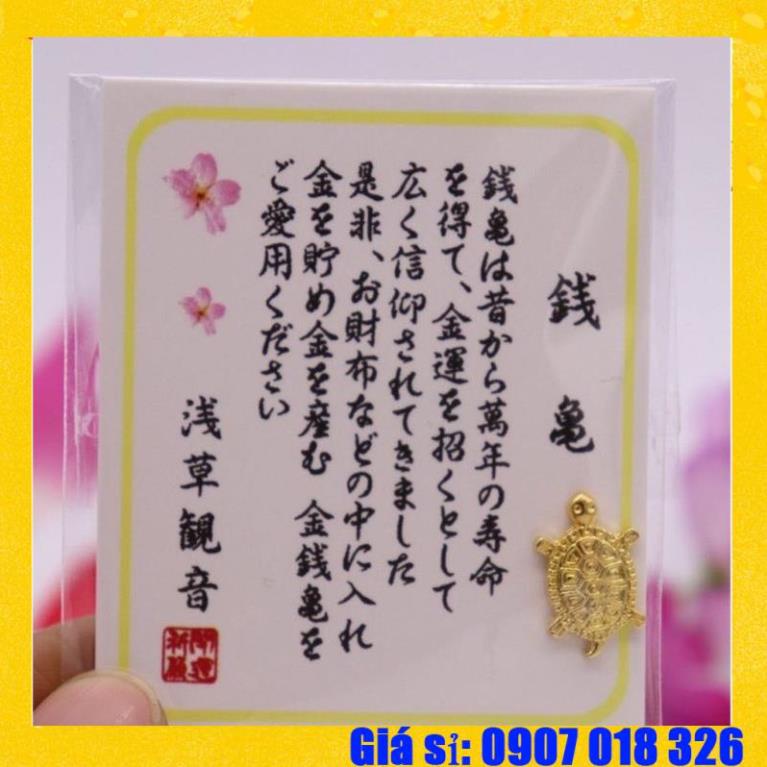 銭亀
銭亀は昔から萬年の寿命
を得て、金運を招くとして
広く信仰されてきました
是非、お財布などの中に入れ
金を貯め金を産む 金銭亀を
ご愛用ください
浅草観音
開運
祈願
Giá sỉ: 0907 018 326